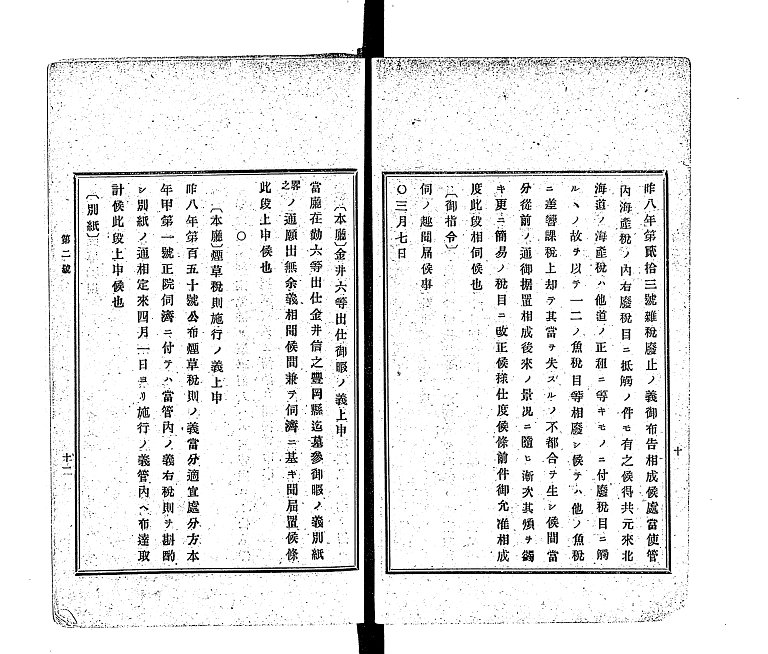 昨八年第貳拾三號雜税廢止ノ義御布告相成候處當使管
內海產税ノ內右廢税目ニ抵觸ノ件モ有之候得共元來北
海道ノ海產税ハ他道ノ正租ニ等キモノニ付廢税目ニ觸
ルヽノ故ヲ以テ一二ノ魚税目等相廢シ候テハ他ノ魚税
ニ差響課税上却テ其當ヲ失スルノ不都合ヲ生シ候間當
分從前ノ通御据置相成後來ノ景況ニ隨ヒ漸次其煩ヲ蠲
キ更ニ簡易ノ税目ニ改正候樣仕度候條前件御允准相成
度此段相伺候也
〔御指令〕
伺ノ趣聞届候事
〇三月七日
十
〔本廳〕金井六等出仕御暇ノ義上申
當廳在勤六等出仕金井信之豐岡縣迄墓參御暇ノ義別紙
畧之ノ通願出無余義相聞候間兼テ伺濟ニ基キ聞届置候條
此段上申候也
〇
〔本廳〕煙草税則施行ノ義上申
昨八年第百五十號公布煙草税則ノ義當分適宜處分方本
年甲第一號正院伺濟ニ付テハ當管內ノ義右税則ヲ斟酌
シ別紙ノ通相定來四月一日ヨリ施行ノ義管內ヘ布達取
計候此段上申候也
〔別紙〕
第二號
十一